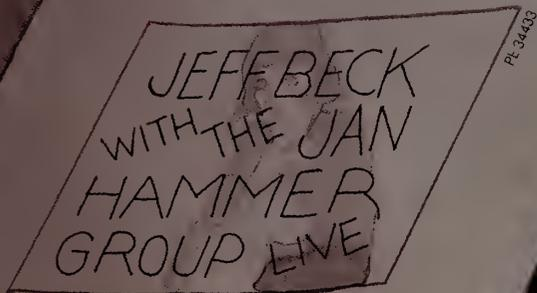 JEFF BECK
WITH THE JAN
HAMMER
GROUP LIVE
PE 34433